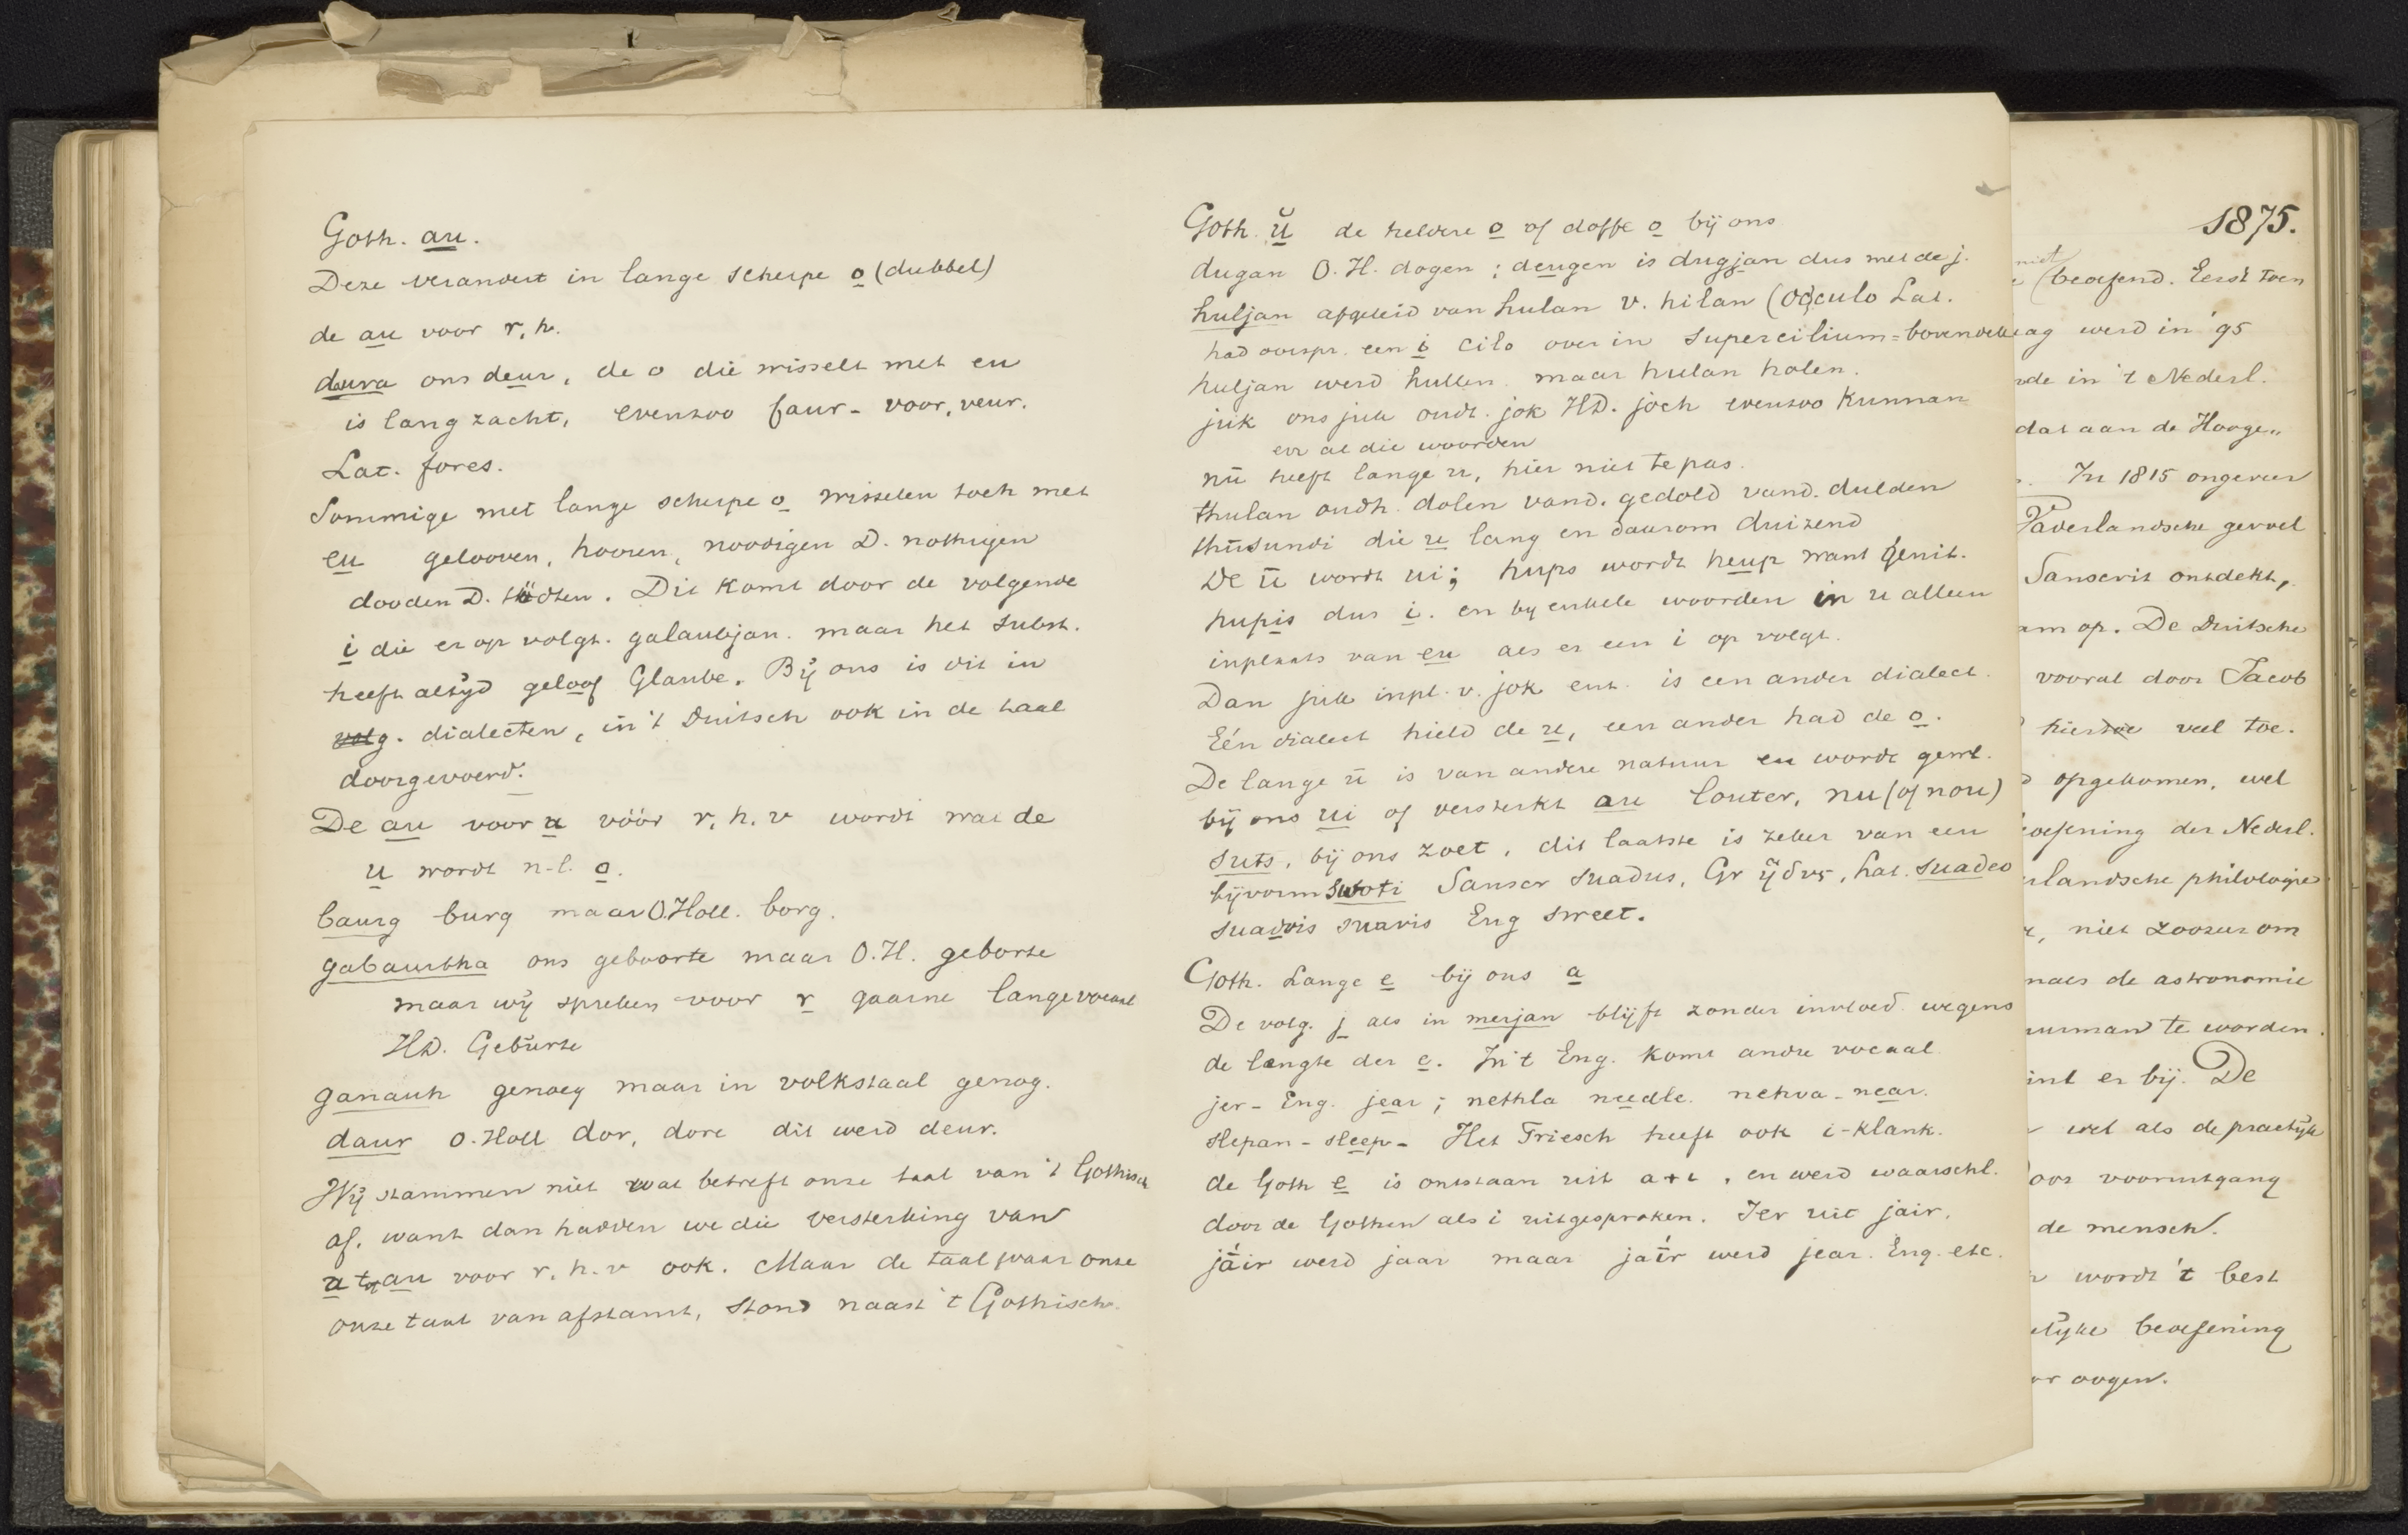 Goth. au.
Deze verandert in lange scherpe o (dubbel)
de au voor r, h.
daura ons deur, de o die wisselt met eu
is lang zacht, evenzoo faur - voor, veur.
Lat. fores.
Sommige met lange scherpe o wisselen toch met
eu gelooven, hooren, noodigen D. nothigen
dooden D. tödten. Dit komt door de volgende
i die er op volgt. galaubjan. maar het subst.
heeft altyd geloof Glaube. Bij ons is dit in
volg. dialecten, in 't Duitsch ook in de taal
doorgevoerd.
De au voor u vóór r, h, v wordt wat de
u wordt n-l. o.
baurg burg maar O.Holl. borg.
gabaurtha ons geboorte maar O.H. geborte
maar wij spreken voor r gaarne lange vocaal
HD. Geburte
ganauh genoeg maar in volkstaal genog.
daur O.Holl dor, dore dit werd deur.
Wij stammen niet wat betreft onze taal van 't Gothisch
af, want dan hadden we die versterking van
u tot au voor r. h. v ook. Maar de taal waar onze
onze taal van afstamt, stond naast 't Gothisch.
Goth. ŭ de heldere o of doffe o bij ons
dugan O.H. dogen ; deugen is dugjan dus met de j.
huljan afgeleid van hulan v. hilan (occulo Lat.
had oorspr. een i cilo over in supercilium = bovendek
huljan werd hullen maar hulan holen.
juk ons juk oudt. jok HD. joch evenzoo Kunnan
en al die woorden
nū heeft lange u, hier niet te pas.
thulan oudh. dolen vand. gedold vand. dulden
thūsundi die u lang en daarom duizend
De ū wordt ui; hups wordt heup want genit.
hupis dus i. en by enkele woorden in u alleen
inplaats van eu als er een i op volgt.
Dan juk inpl. v. jok ent. is een ander dialect.
Eén dialect hield de u, een ander had de o.
De lange ū is van andere natuur en wordt gewl.
bij ons ui of versterkt au louter, nu (of nou)
suts, bij ons zoet, dit laatste is zeker van een
bijvorm swoti Sanscr suadus, Gr ἡδυς, Lat. suadeo
suadvis suavis Eng sweet.
Goth. Lange e bij ons a
De volg. j als in merjan blijft zonder invloed wegens
de lengte der e. In 't Eng. komt andre vocaal
jer - Eng. jear ; nethla needle. nehva - near.
slepan - sleep - Het Friesch heeft ook i-klank.
de Goth e is ontstaan uit a + i, en werd waarschl.
door de Gothen als i uitgesproken. Jer uit jair,
jáir werd jaar maar jaír werd jear. Eng. etc.
1875.
niet
(beoefend. Eerst toen
ag werd in '95
de in 't Nederl.
dat aan de Hooge„
In 1815 ongeveer
Vaderlandsche gevoel
Sanscrit ontdekt,
am op. De Duitsche
vooral door Jacob
hiertoe veel toe.
opgekomen, wel
oefening der Nederl.
rlandsche philologie
, niet zoozeer om
naals de astronomie
uurman te worden.
int er bij. De
wel als de practijk
oor vooruitgang
de mensch.
wordt 't best
elijke beoefening
or oogen.